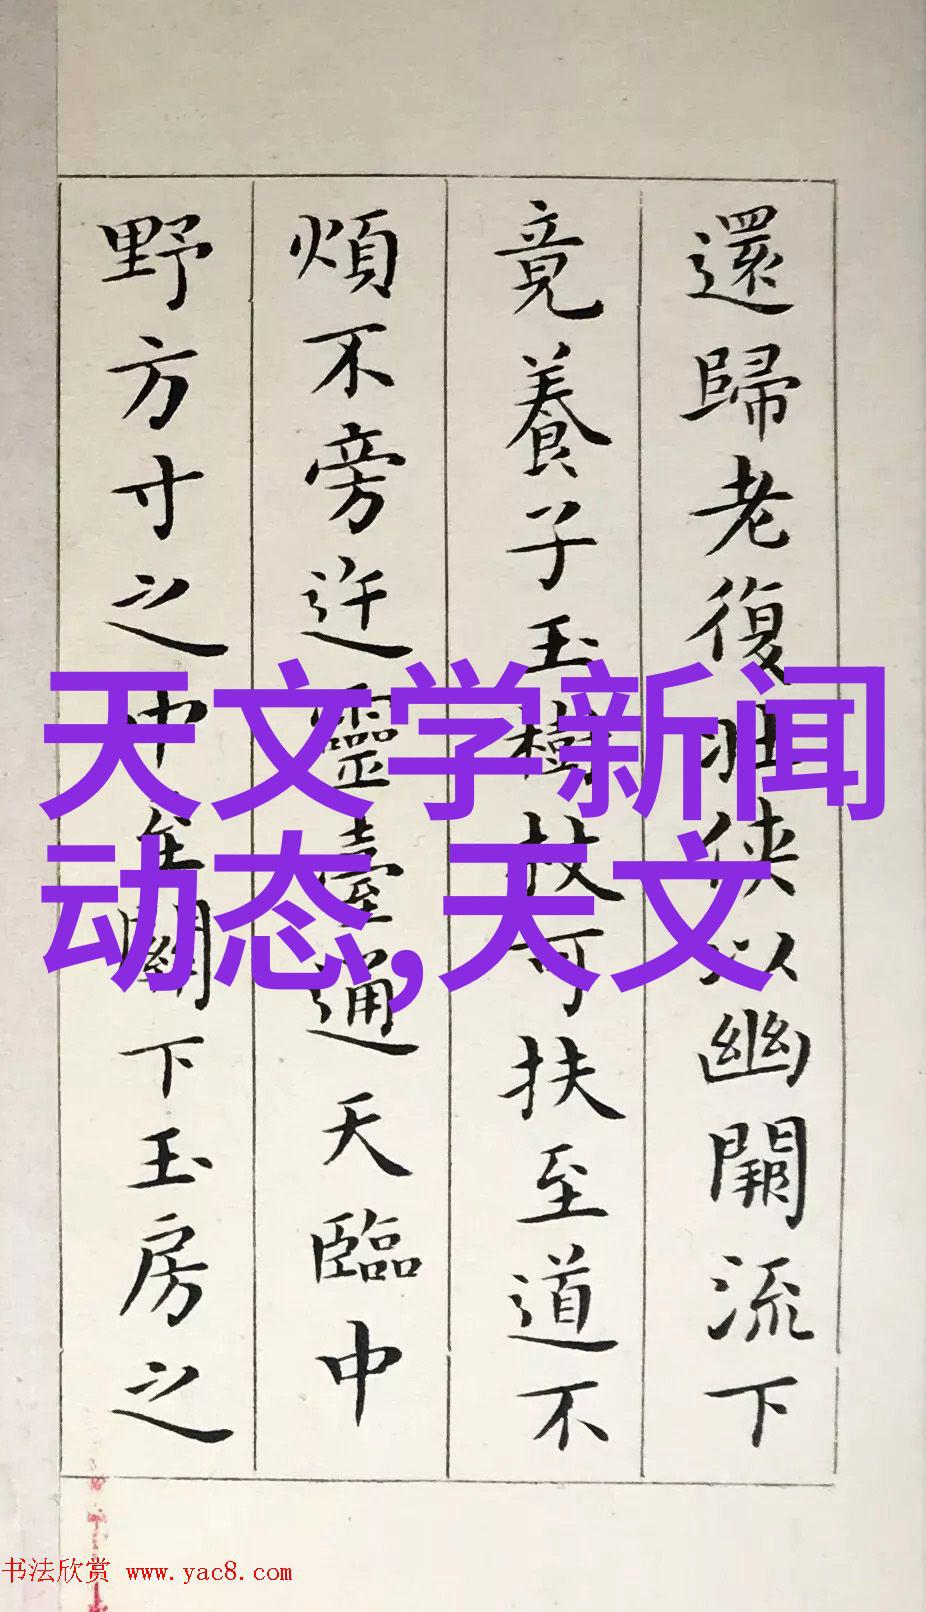 還歸老復壯俠以幽闕流下
竟養子玉樹杖可扶至道不
煩不旁迕靈臺通天臨中
野方寸之中至關下玉房之
天文学新闻
动态,天文
书法欣赏 www.yac8.com